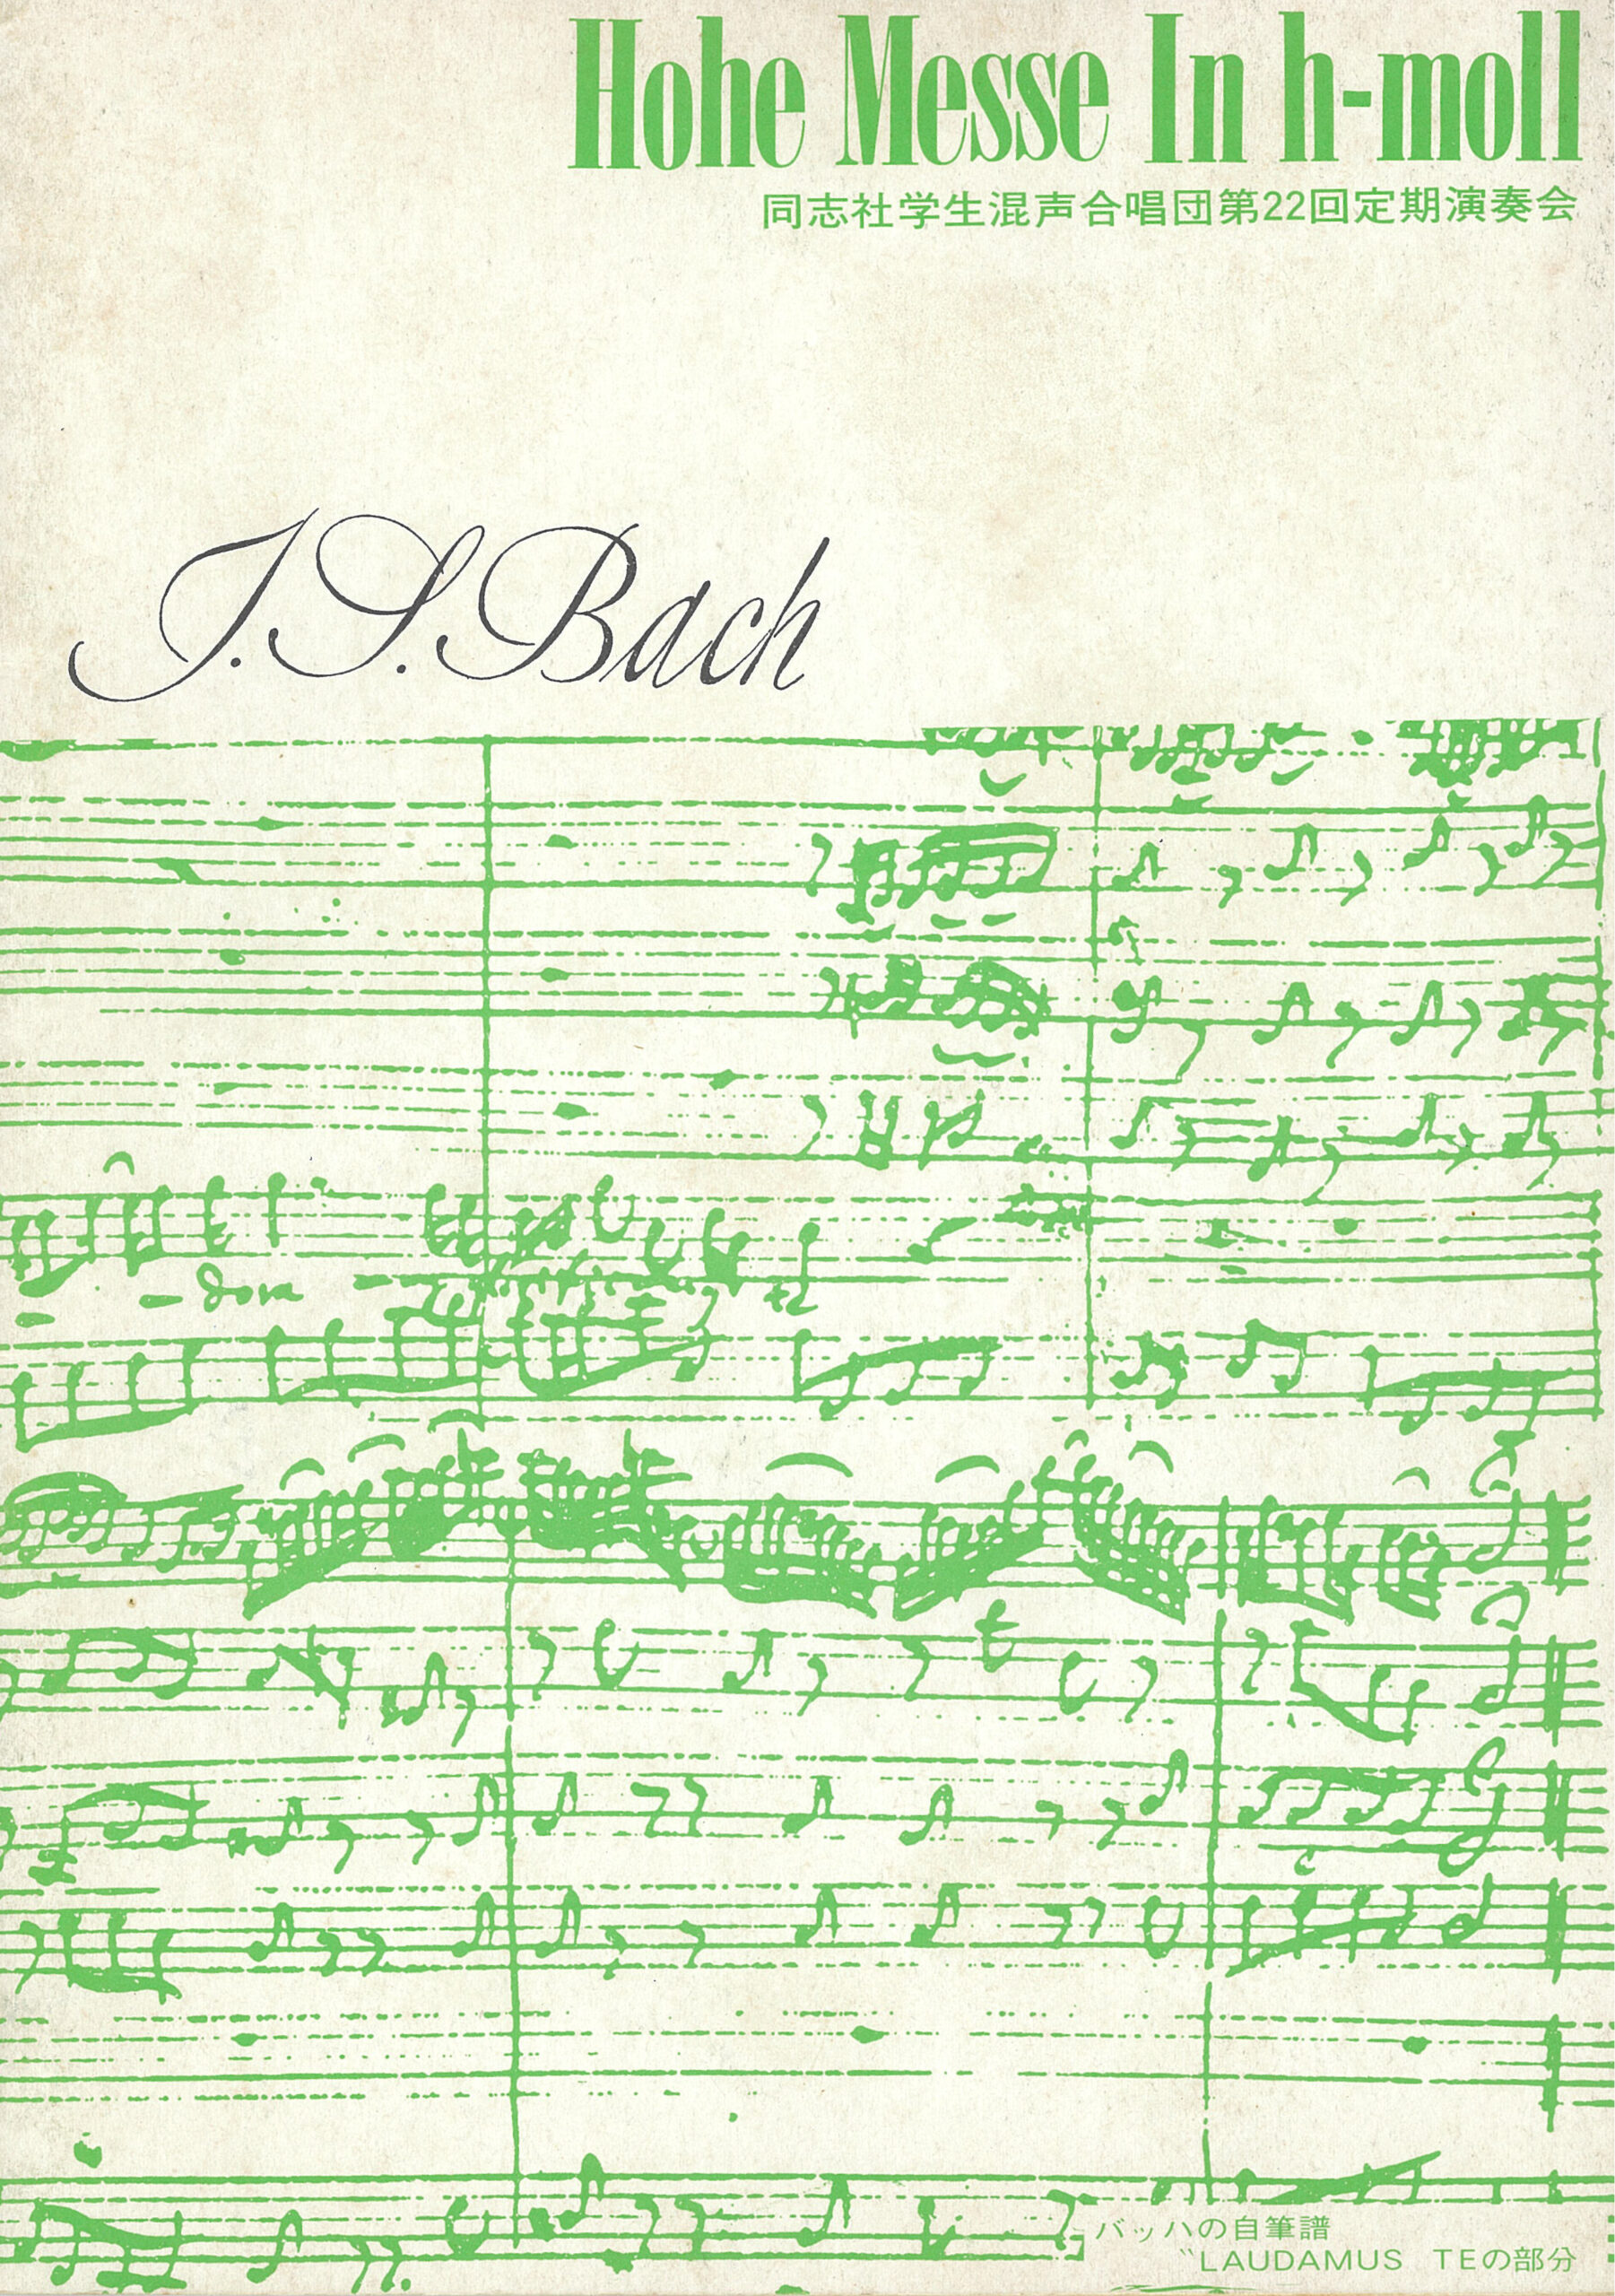 Hohe Messe In h-moll
同志社学生混声合唱団第22回定期演奏会
J.S.Bach
バッハの自筆譜
〝LAUDAMUS TEの部分